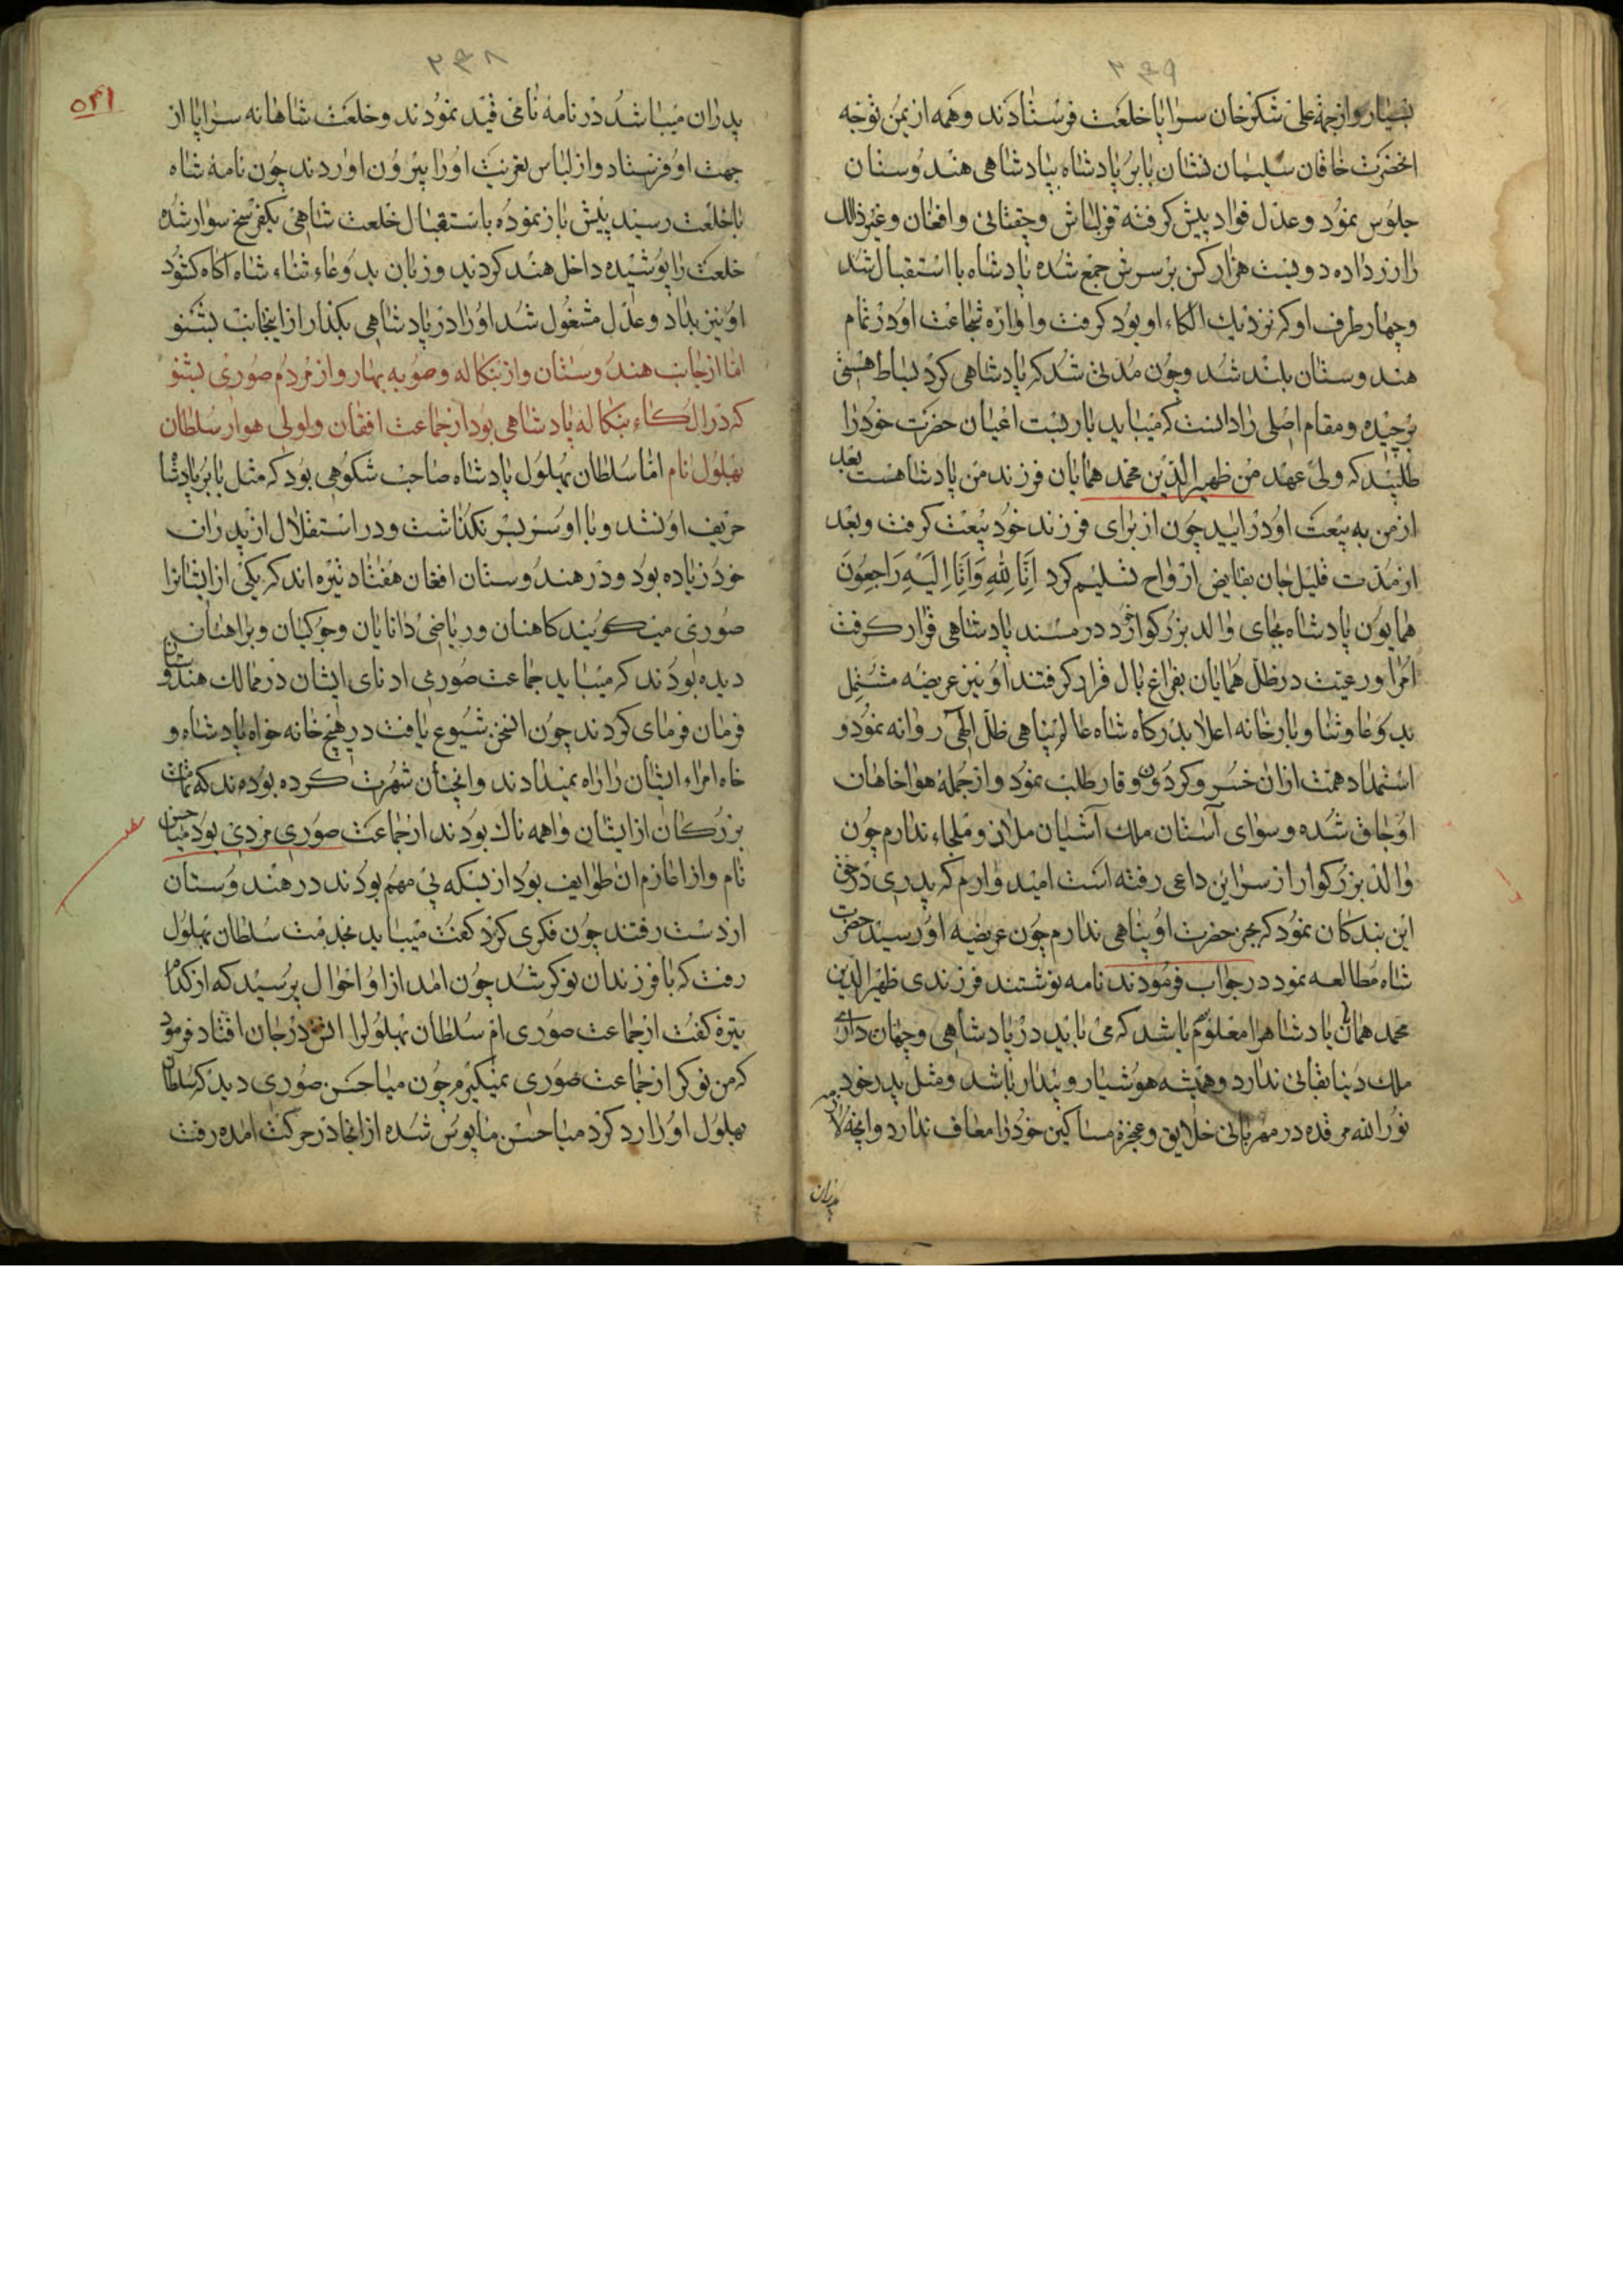 ۲۴۹
بسیار و از جهة علی شکر خان سراپا خلعت فرستادند و همه از یمن توجه
انحضرت خاقان سلیمان نشان بابر پادشاه بپادشاهی هندوستان
جلوس نمود و عدل و داد پیش کرفته قزلباش و چغتائی و افغان و غیر ذالک
را زر داده دویست هزار کس بر سرش جمع شده پادشاه با استقبال شد
و چهار طرف او که نزدیک الکاء او بود کرفت و اوازه شجاعت او در تمام
هندوستان بلند شد و چون مدتی شد که پادشاهی کرد بساط هستی
برچیده و مقام اصلی را دانست که میباید بار بست اعیان حضرت خود را
طلبید که ولی عهد من ظهیر الذین محمد همایان فرزند من پادشاهست بعد
از من به بیعت او در ایید چون از برای فرزند خود بیعت کرفت و بعد
از مدت قلیل جان بقابض ارواح تسلیم کرد اِنَّا لِلّٰهِ وَاَنَّا اِلَیْهِ رَاجِعُونَ
همایون پادشاه بجای والد بزرکوار خود در مسند پادشاهی قرار کرفت
امرا و رعیت در ظل همایان بفراغ بال قرار کرفتند او نیز عریضه مشتمل
بدوعا و ثنا و بارخانه اعلا بدرکاه شاه عالم پناهی ظل الهی روانه نمود و
استمداد همت ازان خسرو کردون وقار طلب نمود و از جملهٔ هواخاهان
اوجاق شده و سوای آستان ملک آشیان ملاذ و ملجاء ندارم چون
والد بزرکوار از سر این داعی رفته است امید وارم که پدری در حق
این بندکان نمود که بجز حضرت او پناهی ندارم چون عریضه او رسید حضرت
شاه مطالعه نمود در جواب فرمودند نامه نوشتند فرزندی ظهیر الدین
محمد همایان پادشاهرا معلوم باشد که می باید در پادشاهی و جهان داری
ملک دنیا بقائی ندارد و همیشه هوشیار و بیدار باشد و مثل پدر خود
نور الله مرقده در مهربانی خلایق و عجزه مساکین خود را معاف ندارد و انچه لازمه
پدران
۲۴۸
۵۴۱
پدران میباشد در نامهٔ نامی قید نمودند و خلعت شاهانه سراپا از
جهت او فرستاد و از لباس تعزیت او را بیرون اوردند چون نامهٔ شاه
با خلعت رسید پیش باز نموده باستقبال خلعت شاهی یکفرسخ سوار شده
خلعت را پوشیده داخل هند کردید و زبان بدوعاء ثناء شاه اکاه کشود
او نیز بداد و عدل مشغول شد او را در پادشاهی بکذار از اینجانب بشنو
اما از جانب هندوستان و از بنکاله و صوبه بهار و از مردم صوری بشنو
که در الکاء بنکاله پادشاهی بود از جماعت افغان و لولی هوار سلطان
بهلول نام اما سلطان بهلول پادشاه صاحب شکوهی بود که مثل بابر پادشا
حریف او نشد و با او سر بسر نکذاشت و در استقلال از پدران
خود زیاده بود و در هندوستان افغان هفتاد تیره اند که یکی از ایشانرا
صوری میکویند کاهنان و ریاضی دانایان و جوکیان و براهنان
دیده بودند که میباید جماعت صوری ادنای ایشان در ممالک هندوستان
فرمان فرمای کردند چون السخن شیوع یافت در هیچ خانه خواه پادشاه و
خاه امراء ایشان را راه نمیدادند و انچنان شهرت کرده بودند که تمامت
بزرکان از ایشان واهمه ناک بودند از جماعت صوری مردی بود میا حسن
نام و از اغازم ان طوایف بود از بسکه بی مهم بودند در هندوستان
از دست رفتند چون فکری کرد کفت میباید بخدمت سلطان بهلول
رفت که با فرزندان نوکر شد چون امد ازا و احوال پرسید که از کدام
تیره کفت از جماعت صوری ام سلطان بهلولرا اتش در جان افتاد فرمود
که من نوکر از جماعت صوری نمیکیرم چون میا حسن صوری دید که سلطان
بهلول او را رد کرد میا حسن مایوس شده از انجا در حرکت امده رفت